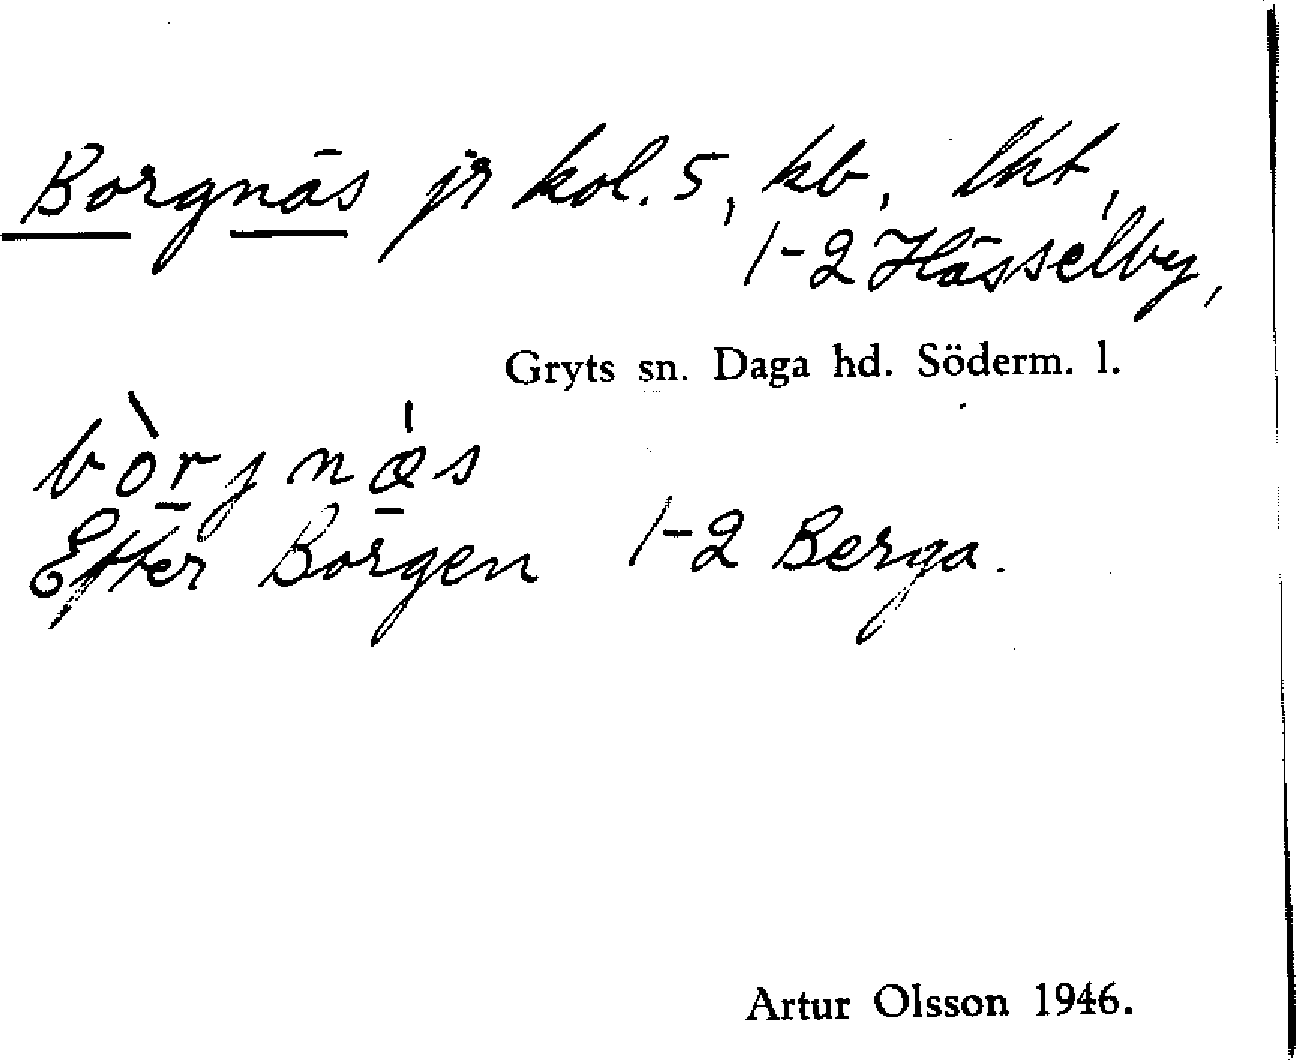 Borgnäs jr kol. 5, kb, lht,
1-2 Hässelby,
Gryts sn. Daga hd. Söderm. l.
bòrjnæ̍s
Efter Borgen 1-2 Berga.
Artur Olsson 1946.